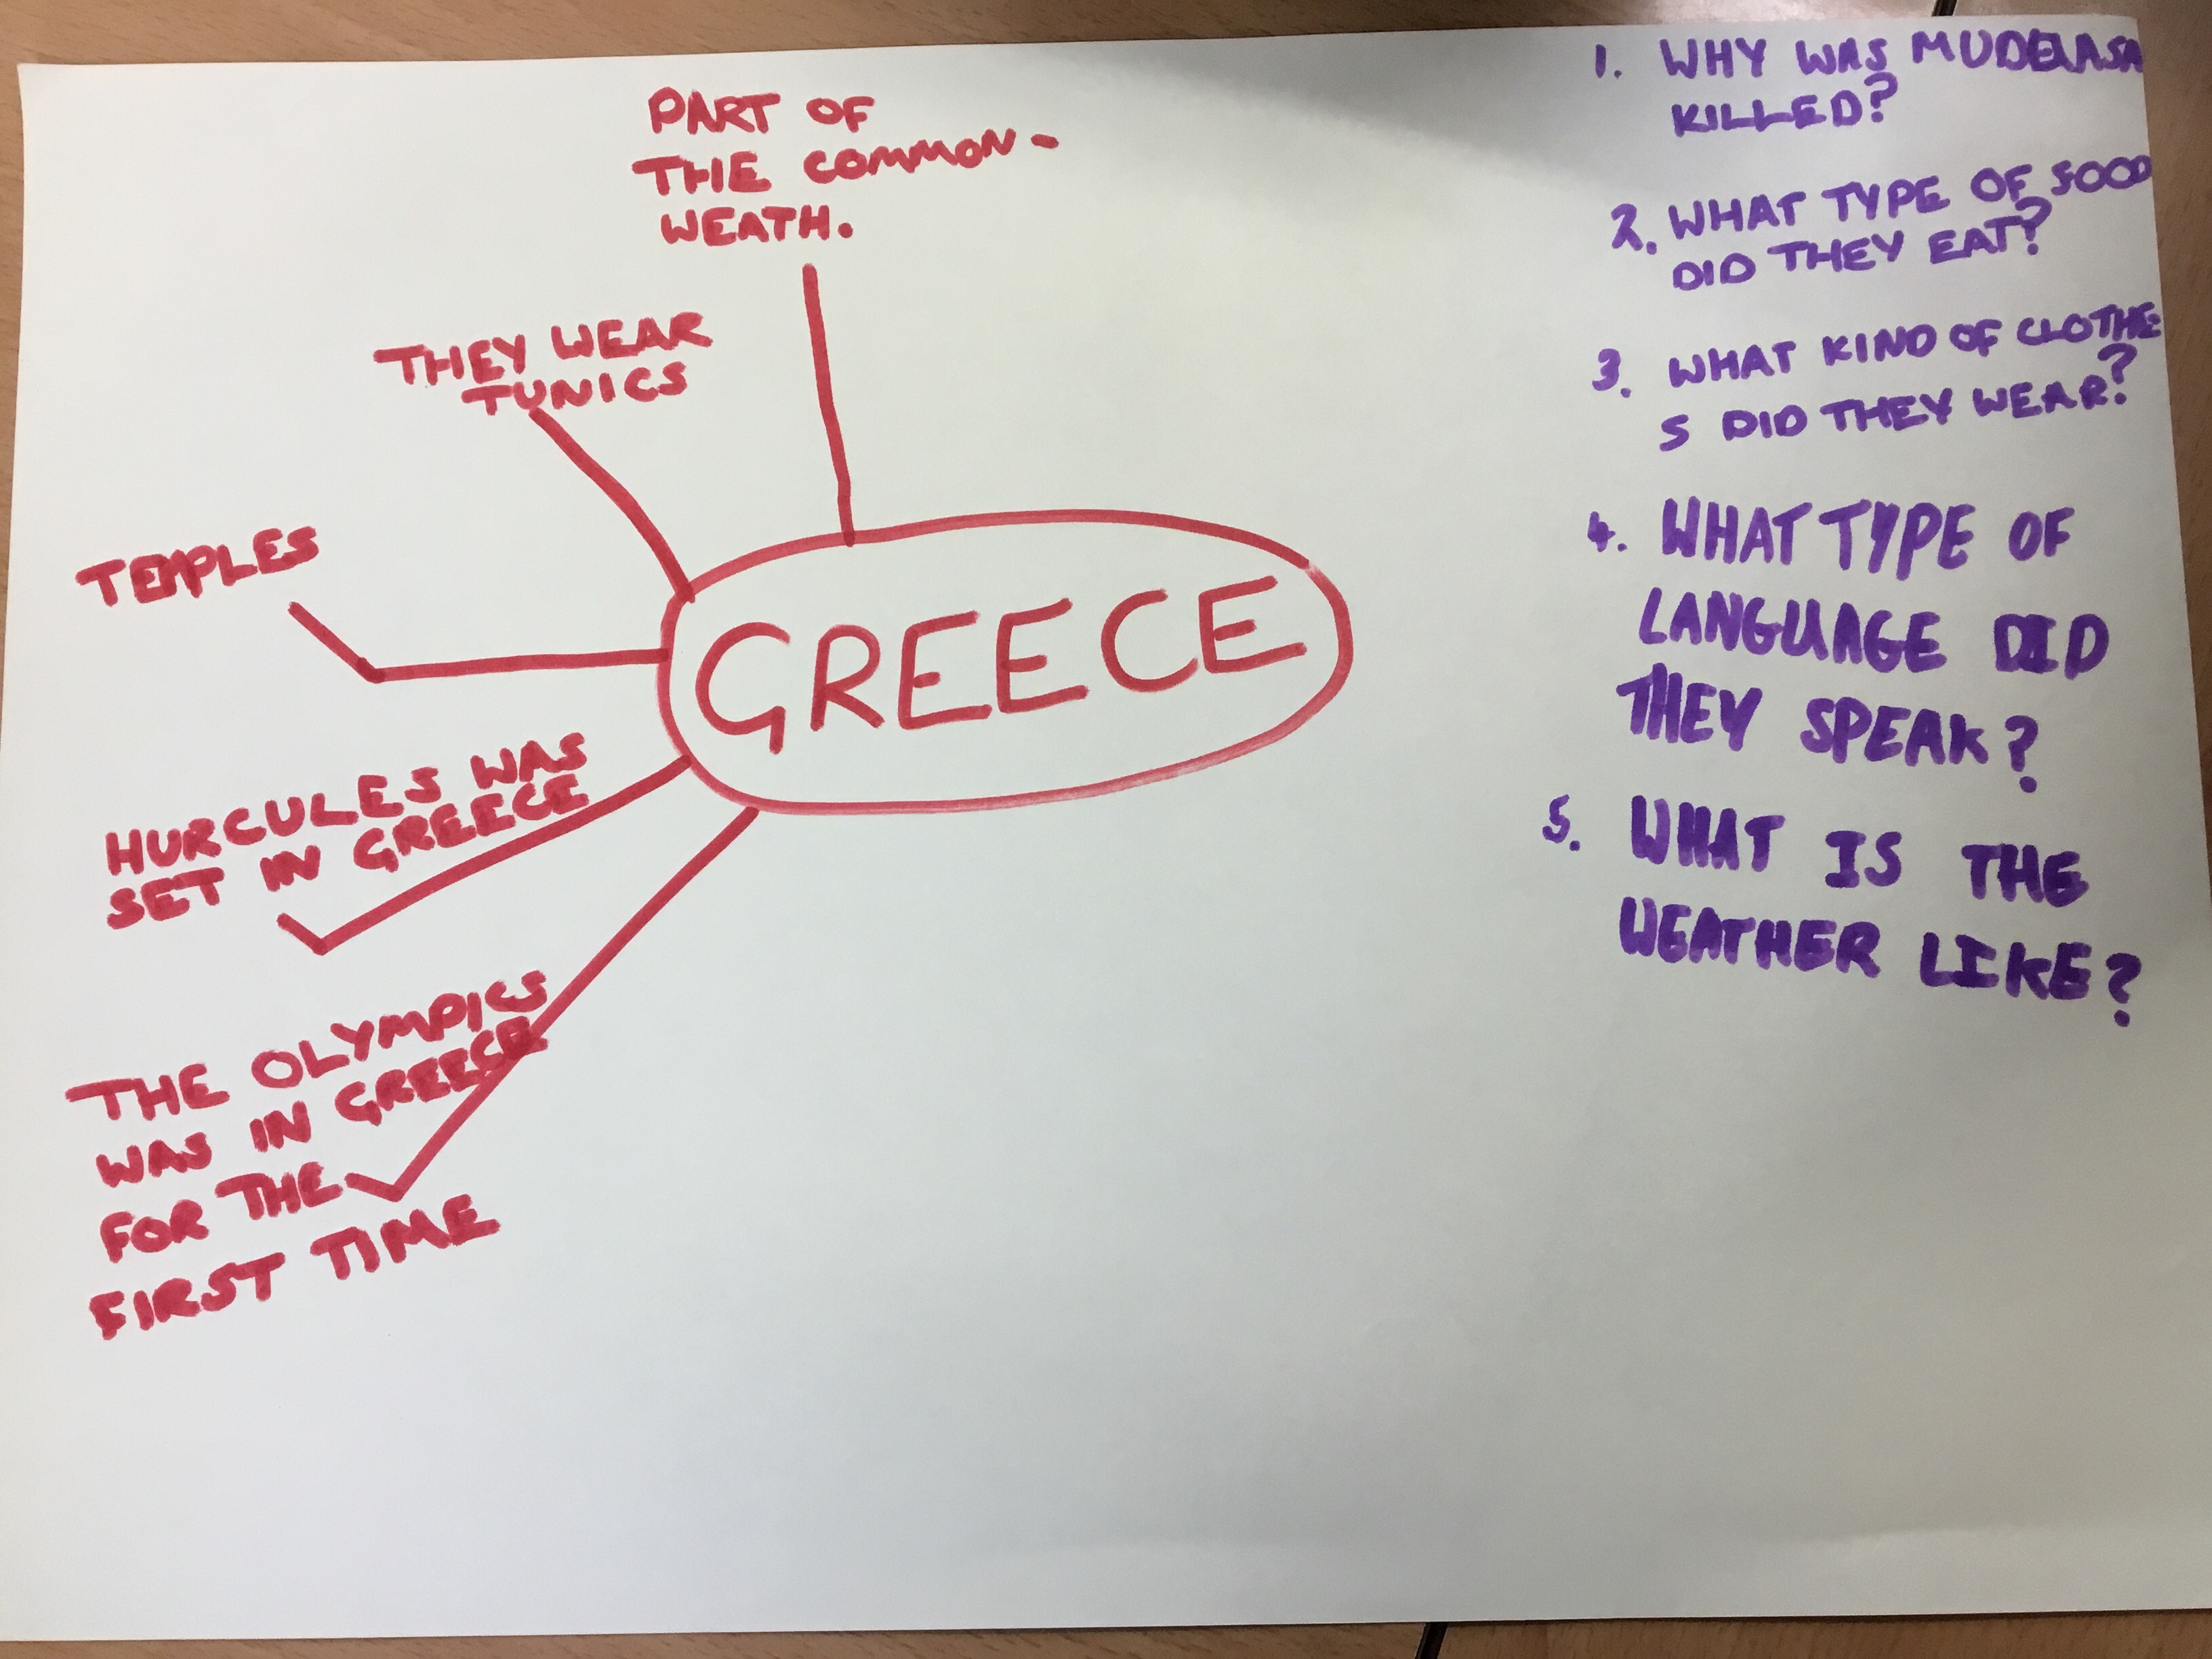 PART OF
THE COMMON-
WEATH.
THEY WEAR
TUNICS
TEMPLES
GREECE
HURCULES WAS
SET IN GREECE
THE OLYMPICS
WAS IN GREECE
FOR THE
FIRST TIME
1. WHY WAS MUDELASA
KILLED?
2. WHAT TYPE OF FOOD
DID THEY EAT?
3. WHAT KIND OF CLOTHE
S DID THEY WEAR?
4. WHAT TYPE OF
LANGUAGE DID
THEY SPEAK?
5. WHAT IS THE
WEATHER LIKE?